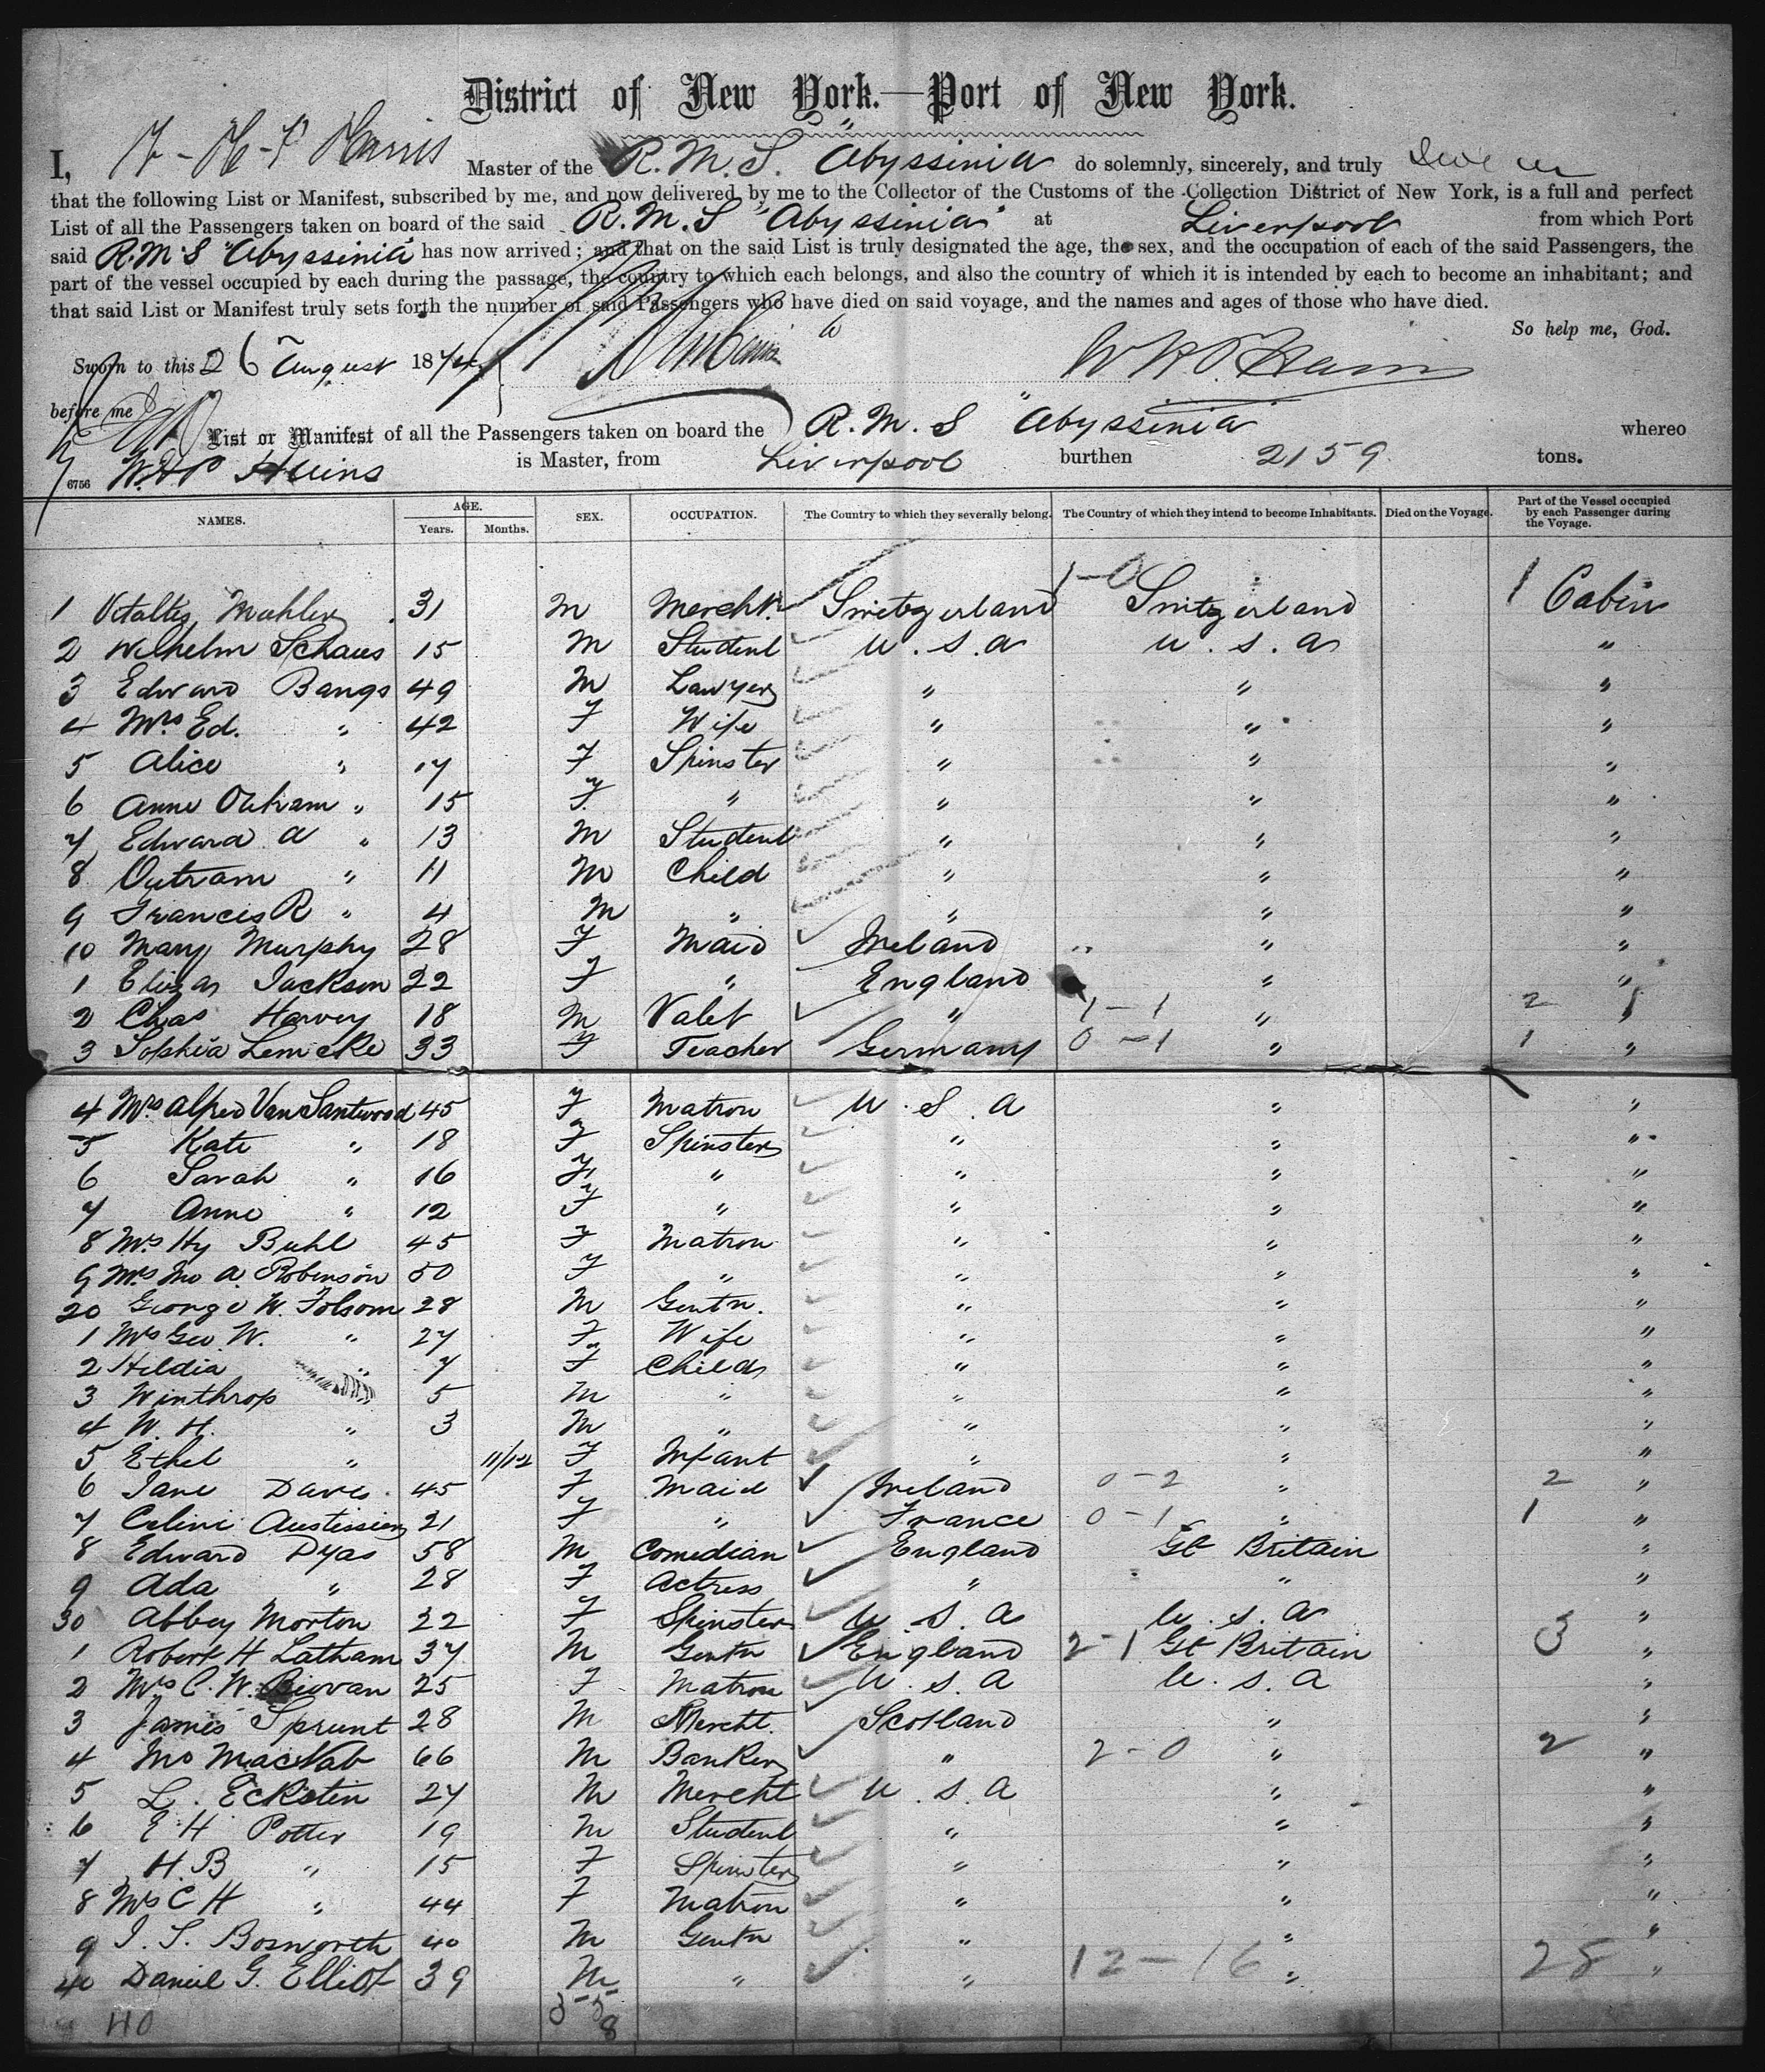 District of New York.—Port of New York.
I, W-H-P Hains Master of the R.M.S. "Abyssinia do solemnly, sincerely, and truly swear
that the following List or Manifest, subscribed by me, and now delivered by me to the Collector of the Customs of the Collection District of New York, is a full and perfect
List of all the Passengers taken on board of the said R.M.S "Abyssinia" at Liverpool from which Port
said R.M.S "Abyssinia has now arrived; and that on the said List is truly designated the age, the sex, and the occupation of each of the said Passengers, the
part of the vessel occupied by each during the passage, the country to which each belongs, and also the country of which it is intended by each to become an inhabitant; and
that said List or Manifest truly sets forth the number of said Passengers who have died on said voyage, and the names and ages of those who have died.
So help me, God.
Sworn to this 26 August 1874 W H P. Hains
before me
List or Manifest of all the Passengers taken on board the R.M.S "Abyssinia" whereo
6756 W.H P Hains is Master, from Liverpool burthen 2159 tons.
NAMES. AGE. Years. Months. SEX. OCCUPATION. The Country to which they severally belong. The Country of which they intend to become Inhabitants. Died on the Voyage. Part of the Vessel occupied by each Passenger during the Voyage.
1-0
1 Vitalis Muhler 31 M Mercht. Switzerland Switzerland 1 Cabin
2 Wilhelm Schaus 15 M Student U.S.A U.S.A "
3 Edward Bangs 49 M Lawyer " " "
4 Mrs Ed. " 42 F Wife " " "
5 Alice " 17 F Spinster " " "
6 Anne Outram " 15 F. " " " "
7 Edward A " 13 M Student " " "
8 Outram " 11 M Child " " "
9 Francis R " 4 M " " " "
10 Mary Murphy 28 F Maid Ireland " "
1 Eliza Jackson 22 F " England " "
2 Chas Harvey 18 M Valet " 1-1 " 2 "
3 Sophia Lemcke 33 F Teacher Germany 0-1 " 1 "
4 Mrs Alfred Van Santwood 45 F Matron U.S.A " "
5 Kate " 18 F Spinster " " "
6 Sarah " 16 F " " " "
7 Anne " 12 F " " " "
8 Mrs. Hy Buhl 45 F Matron " " "
9 Mrs Jno A. Robinson 50 F " " " "
20 George W. Folsom 28 M Gentn. " " "
1 Mrs Geo W. " 27 F Wife " " "
2 Hildia " 7 F Child " " "
3 Winthrop 5 M " " " "
4 W.H. " 3 M " " " "
5 Ethel " 11/12 F Infant " " "
6 Jane Davis 45 F Maid Ireland 0-2 " 2 "
7 Celine 21 F " France 0-1 " 1 "
8 Edward Dyas 58 M Comedian England Gt Britain "
9 Ada " 28 F Actress " " "
30 Abbey Morton 22 F Spinster U.S.A U.S.A "
1 Robert H Latham 37 M Gentn England 2-1 Gt Britain 3 "
2 Mrs C.W. 25 F Matron U.S.A U.S.A "
3 James Sprunt 28 M Mercht. Scotland " "
4 Jno MacNab 66 M Banker " 2-0 " 2 "
5 L. Eckstin 27 M Mercht U.S.A " "
6 E H Potter 19 M Student " " "
7 H.B " 15 F Spinster " " "
8 Mrs C H " 44 F Matron " " "
9 I.S. Bosworth 40 M Gentn " " "
40 Daniel G. Elliot 39 M " " 12-16 " 28 "
40